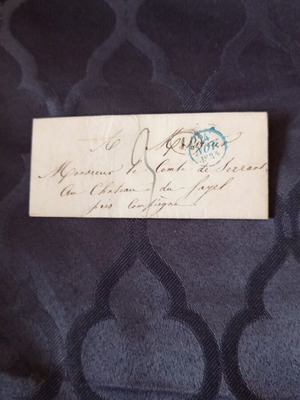 A Monsieur
Monsieur le Comte de Serrant
Au Château du fayel
près Compiègne
24
NOV